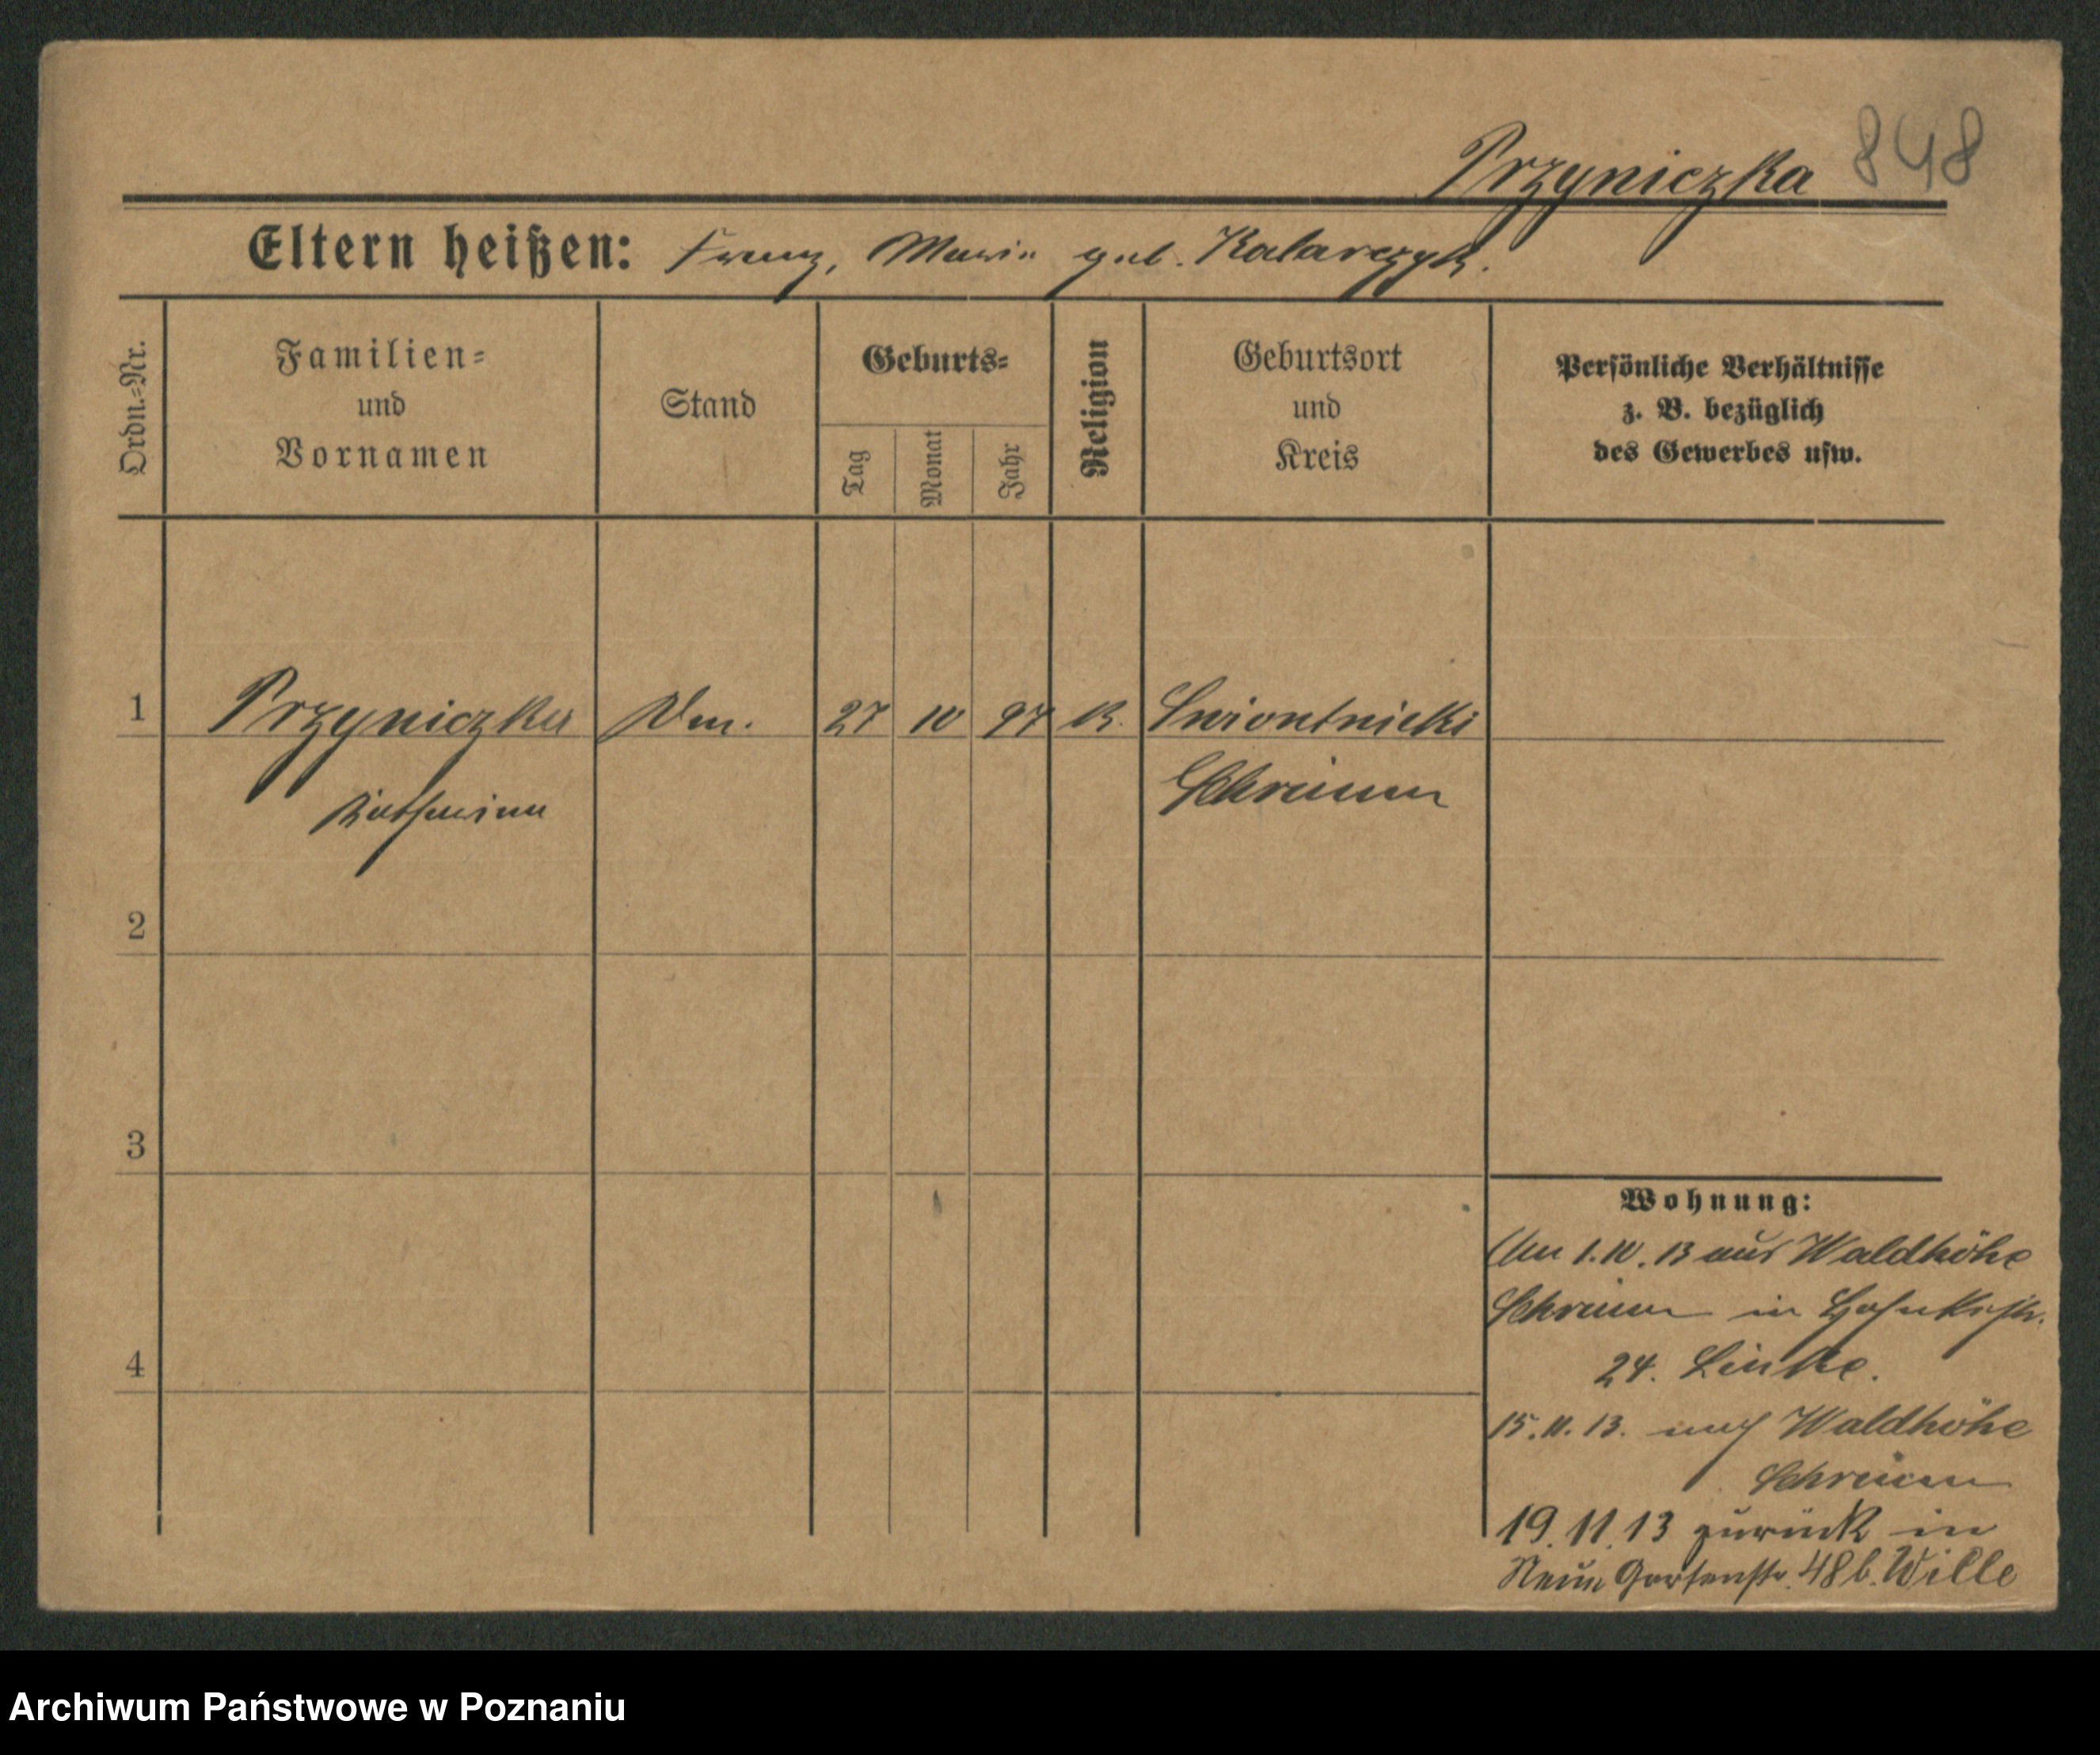 Przyniczka 848
Eltern heißen: Franz, Maria geb. Kalarczyk.
Ordn.=Nr.
Familien=
und
Vornamen
Stand
Geburts=
Tag
Monat
Jahr
Religion
Geburtsort
und
Kreis
Persönliche Verhältnisse
z. B. bezüglich
des Gewerbes usw.
1 Przyniczka 27 10 97 K. Swiontnicki
Katharina Schrimm
2
3
4
Wohnung:
Am 1.10.13 aus Waldhöhe
Schrimm in
24. Linke.
15.11.13. nach Waldhöhe
Schrimm
19.11.13 zurück in
Neue Gartenstr. 48 b. Wille
Archiwum Państwowe w Poznaniu